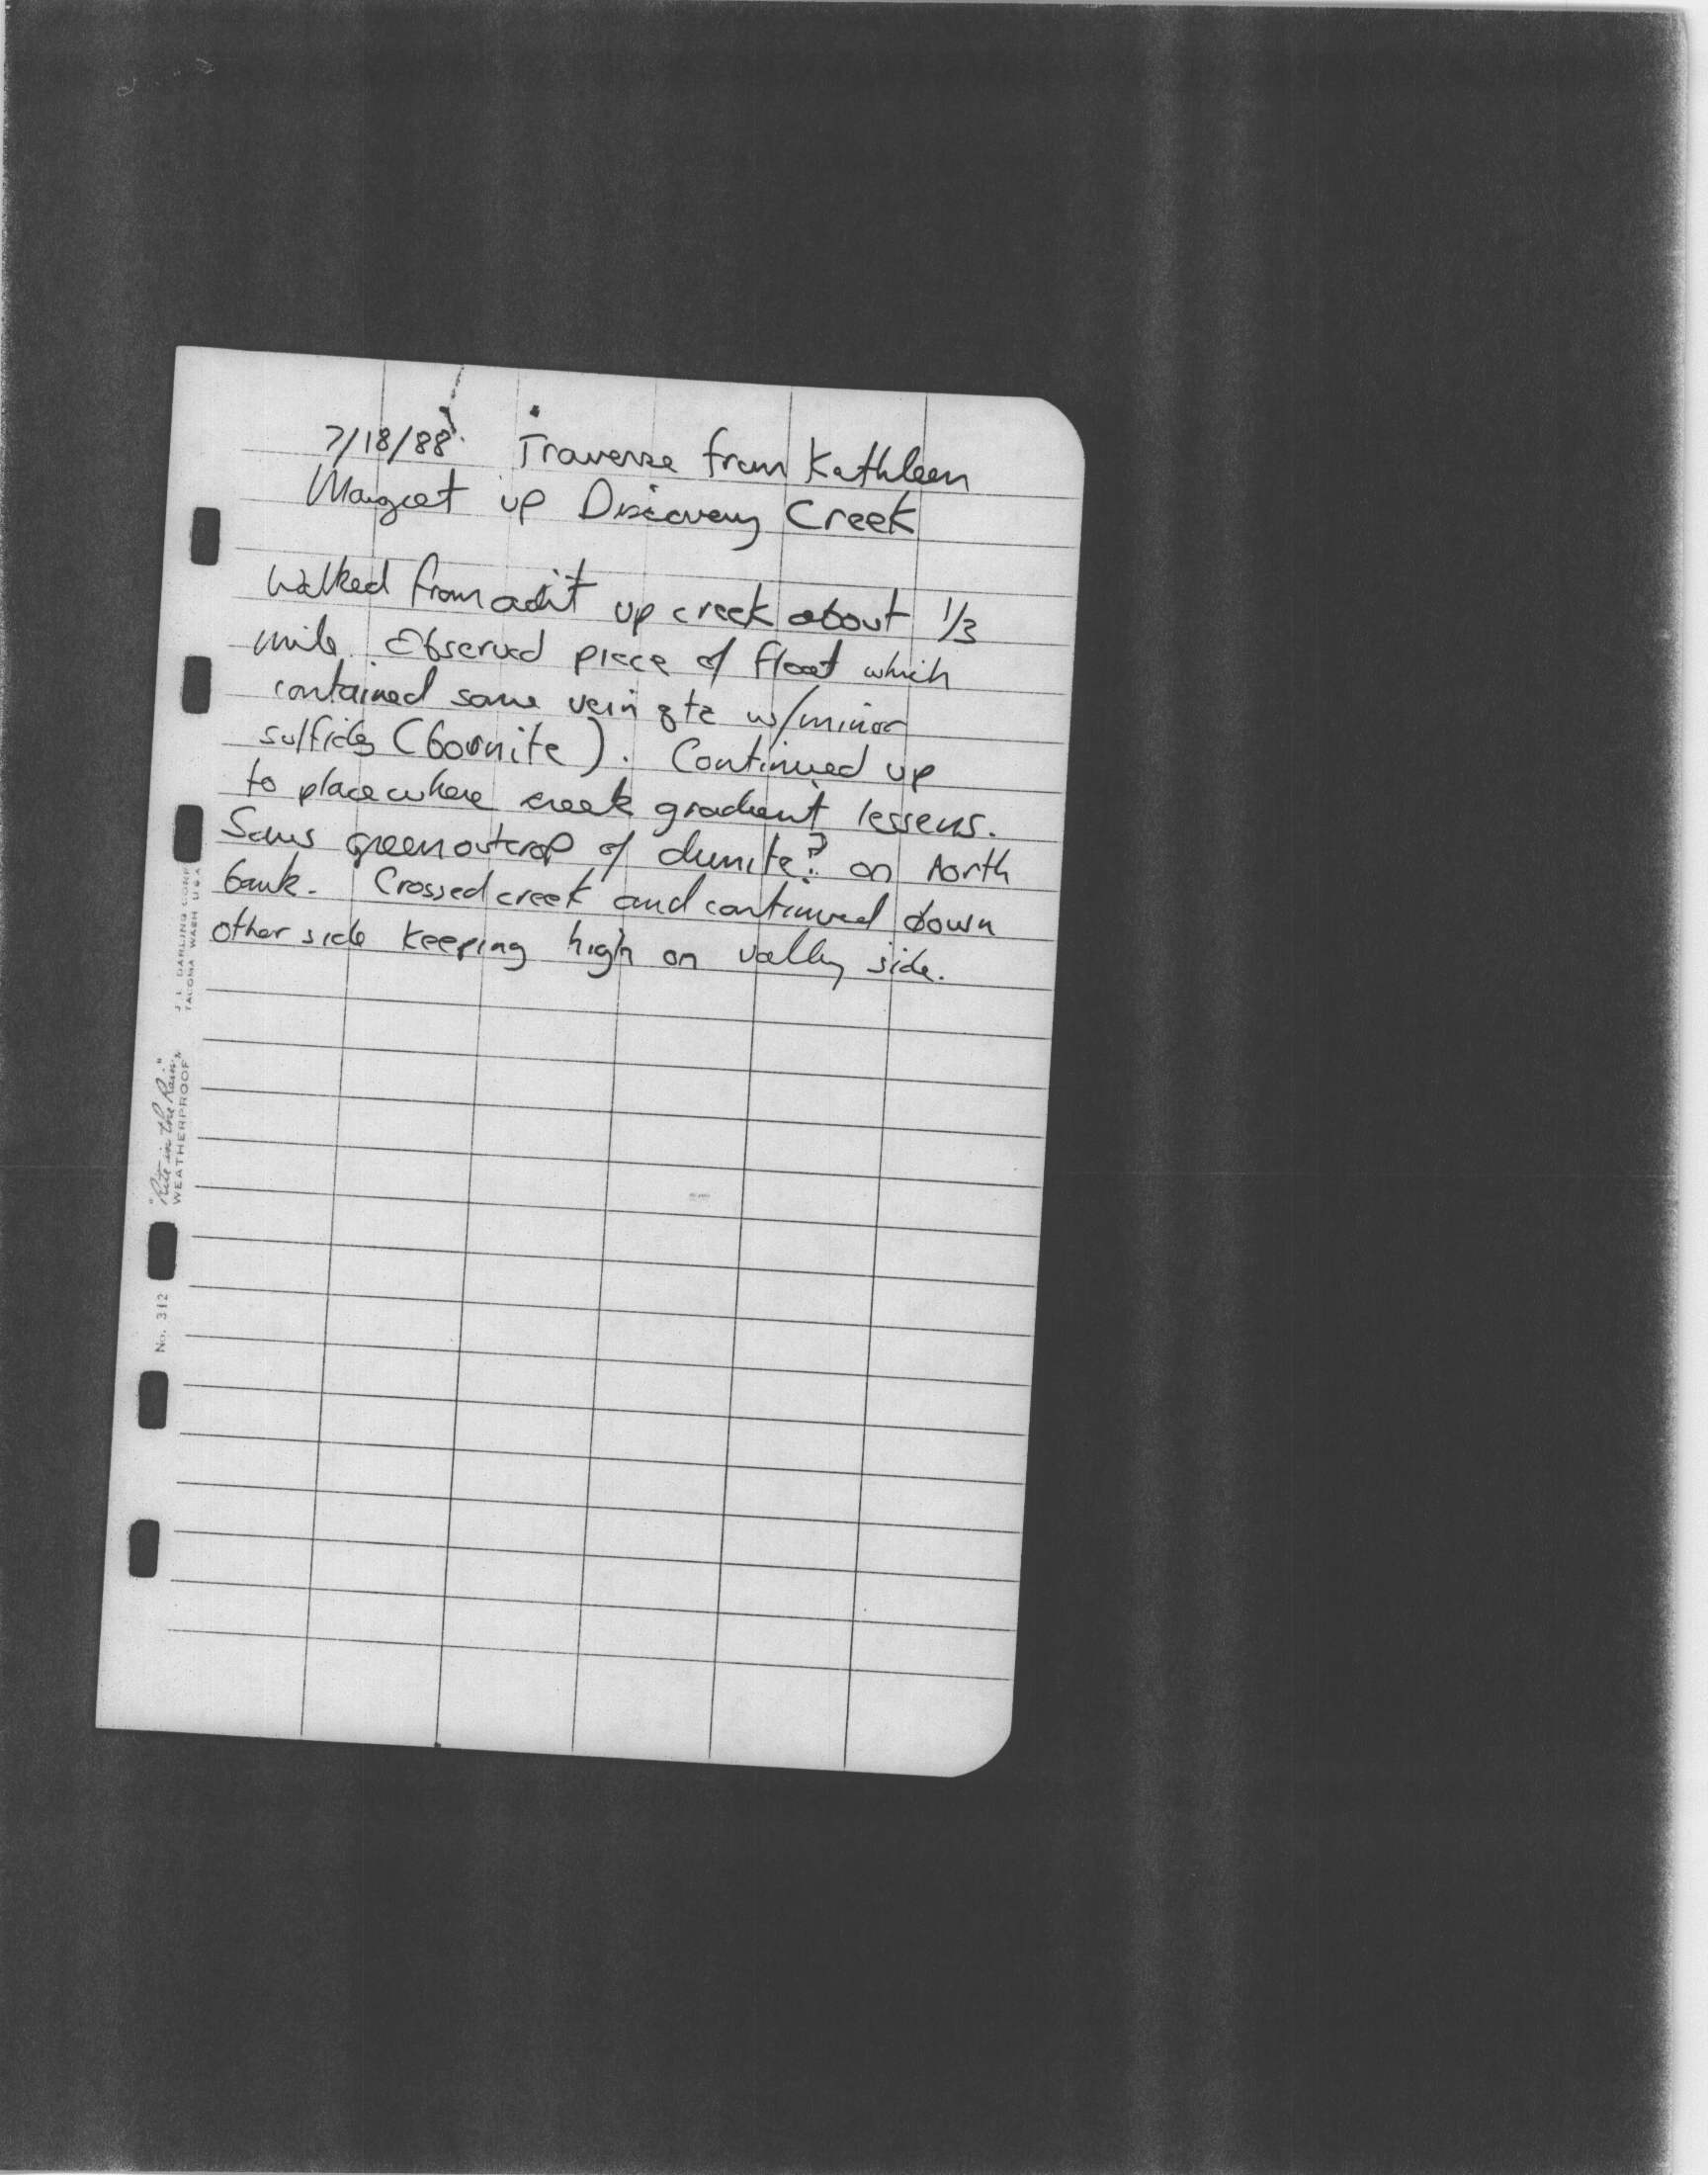 7/18/88. Traverse from Kathleen
Margret up Discovery Creek
Walked from adit up creek about 1/3
mile. Observed piece of float which
contained some vein qtz w/minor
sulfides (bornite). Continued up
to place where creek gradient lessens.
Saws green outcrop of dunite? on North
bank. Crossed creek and continued down
other side keeping high on valley side.
J. L. DARLING CORP
TACOMA WASH USA
"Rite in the Rain"
WEATHERPROOF
No. 312